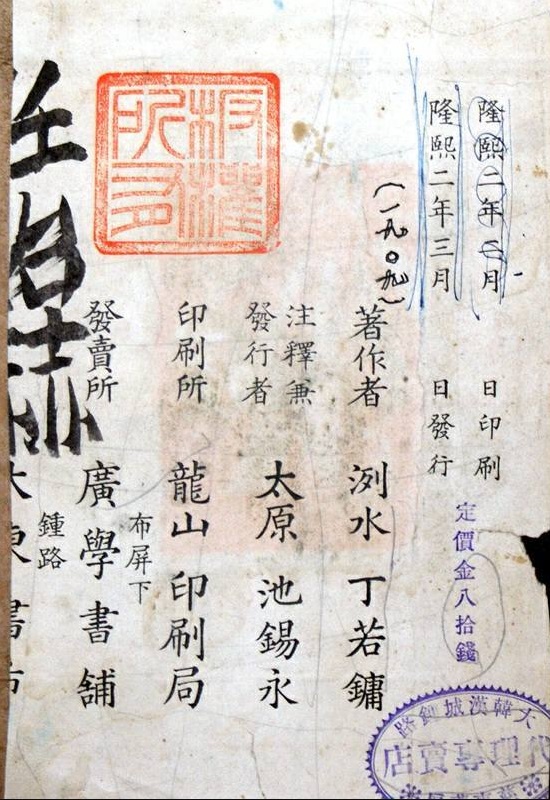 隆熙二年二月 日印刷
定價金八拾錢
隆熙二年三月 日發行
(一九〇九)
著作者 洌水 丁若鏞
注釋兼
發行者 太原 池錫永
印刷所 龍山印刷局
布屏下
發賣所 廣學書舖
鍾路
大東書市
板權
所有
大韓漢城鍾路
代理專賣店